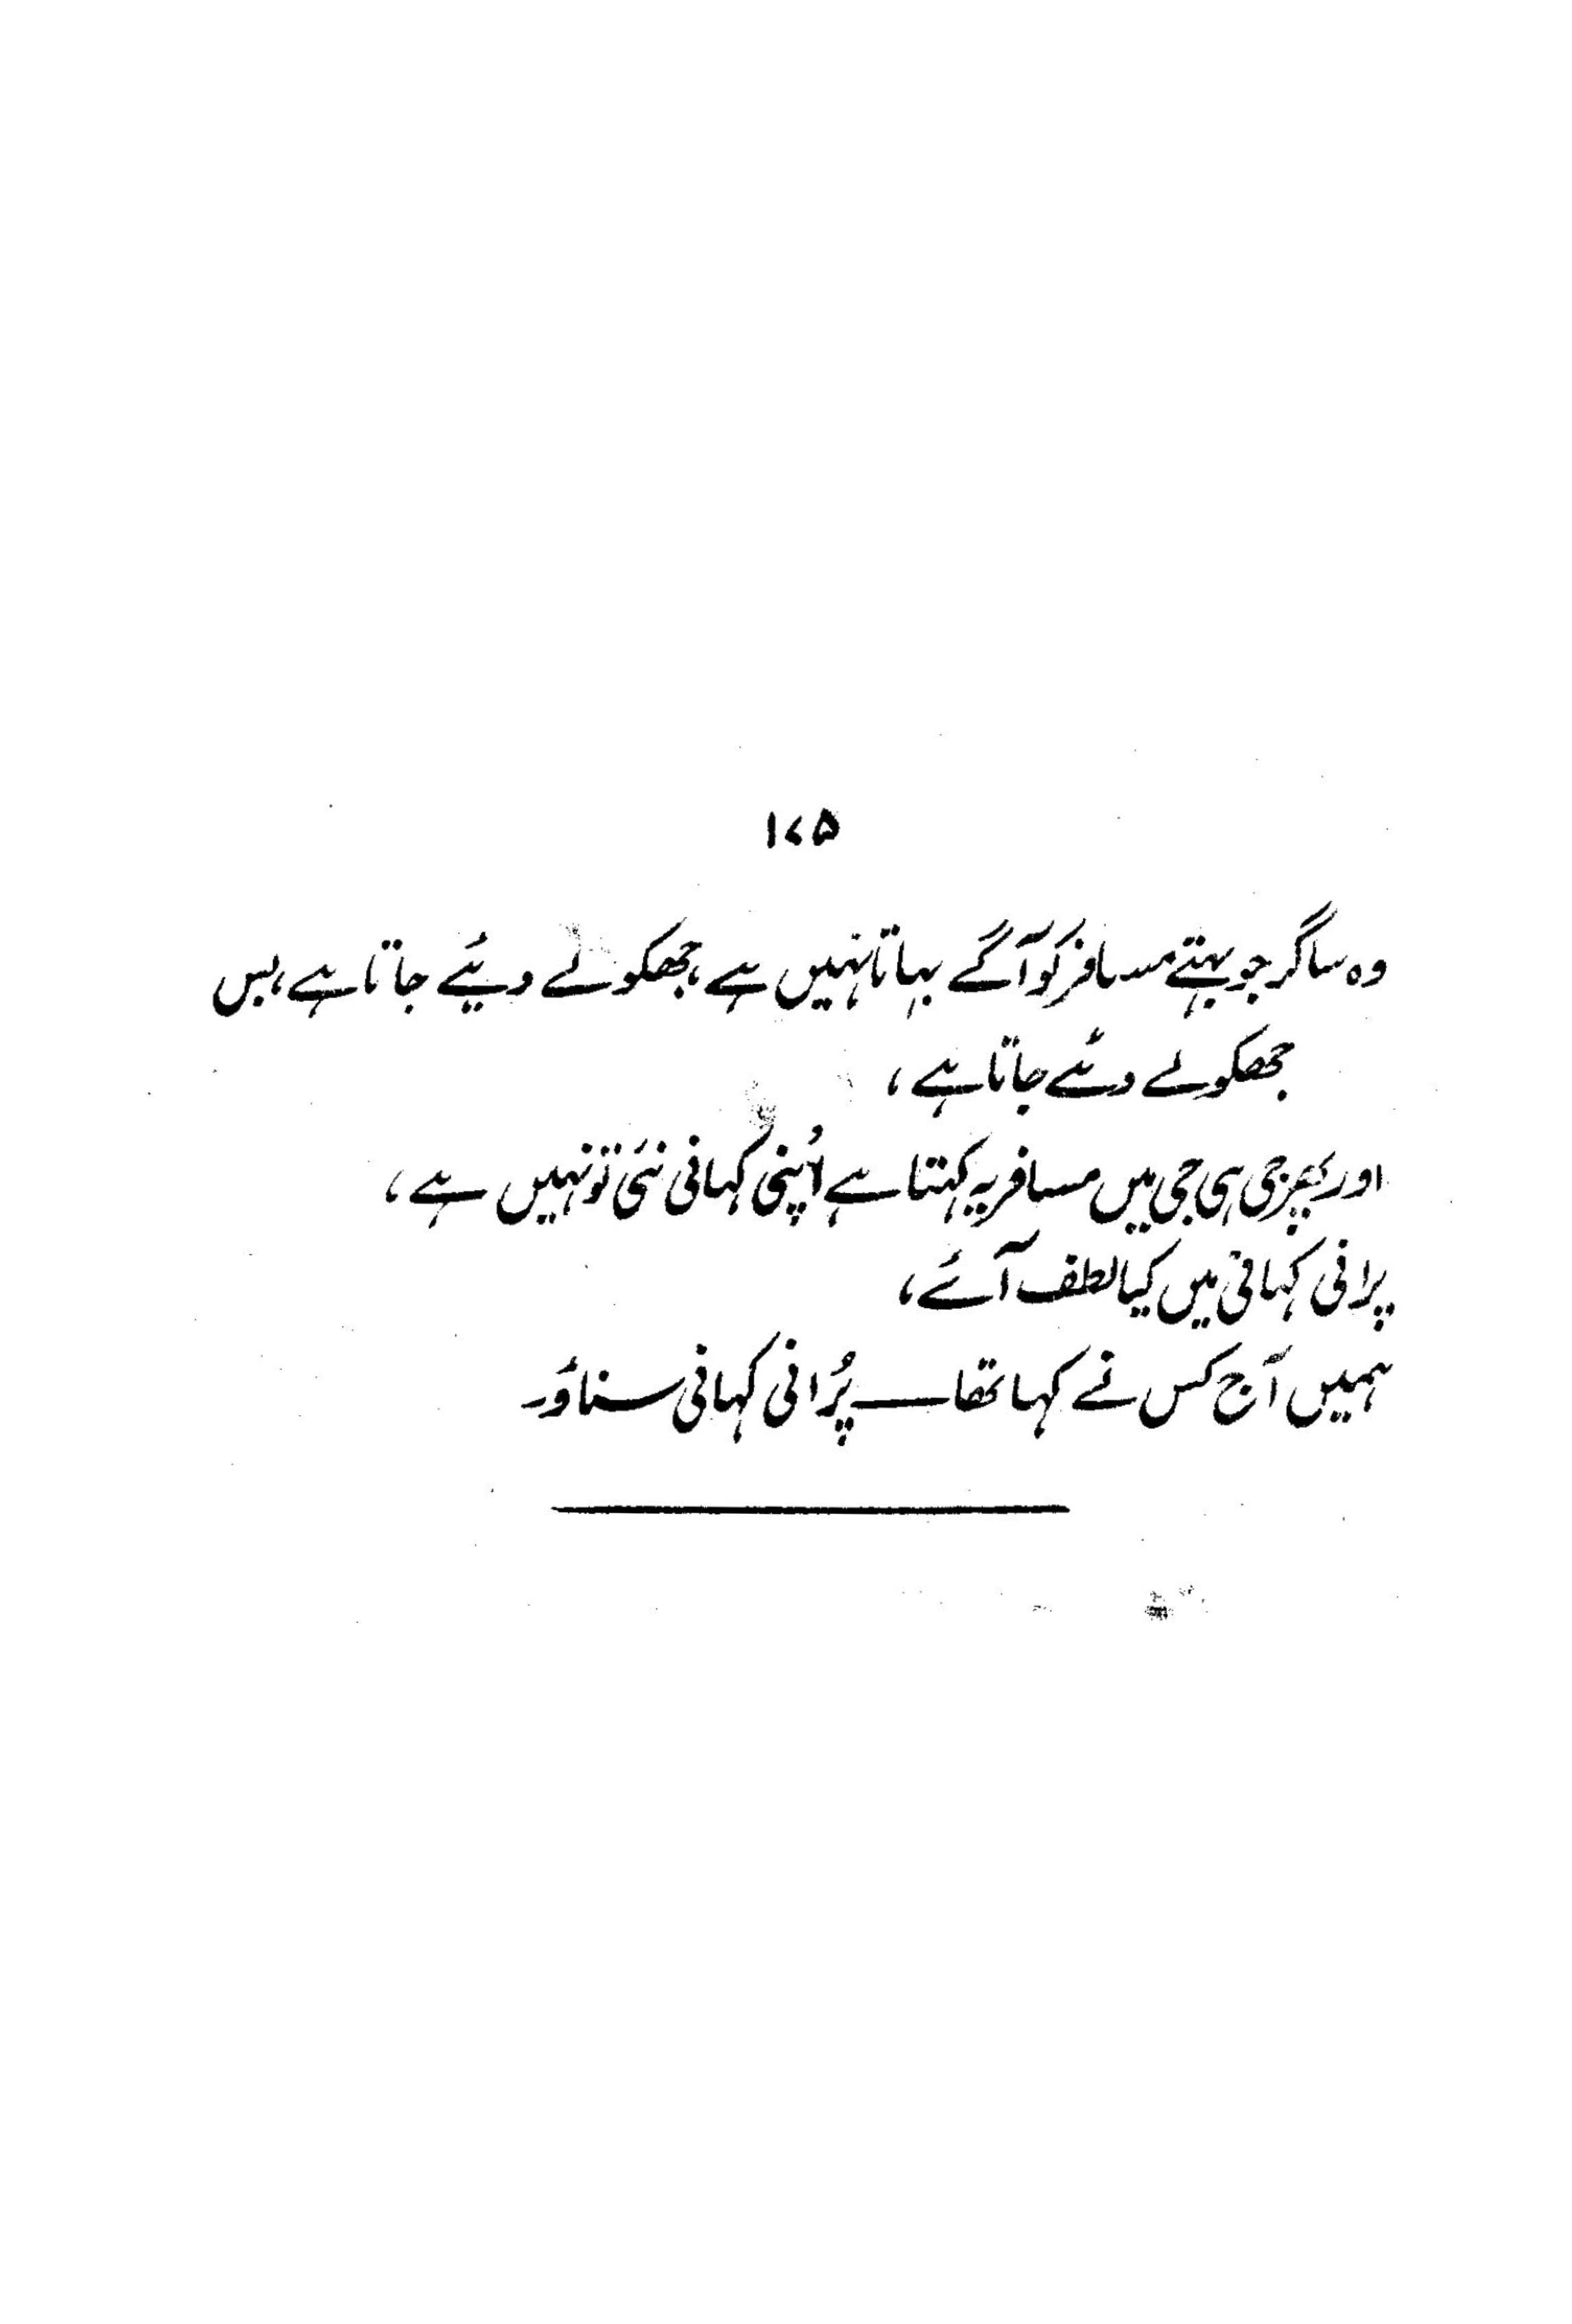 ۱۷۵
وہ ساگر جو بہتے مسافر کو آگے بہاتا نہیں ہے، جھکولے دیئے جاتا ہے، بس
جھکولے دئے جاتا ہے،
اور پھر جی ہی جی میں مسافر یہ کہتا ہے اپنی کہانی نئی تو نہیں ہے،
پرانی کہانی میں کیا لطف آئے،
ہمیں آج کس نے کہا تھا — پُرانی کہانی سناؤ۔